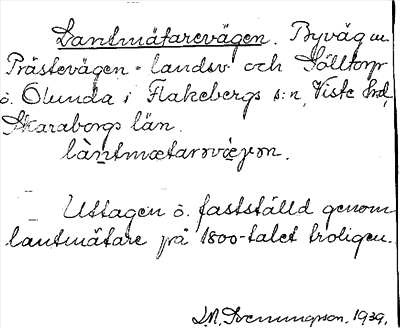 Lantmätarevägen. Byväg m
Prästevägen - landsv och Sölltorp
ö. Ölunda i Flakebergs s:n, Viste hrd,
Skaraborgs län.
làntmætarəvæ̨jən.
Uttagen ö. fastställd genom
lantmätare på 1800-talet troligen.
1939.